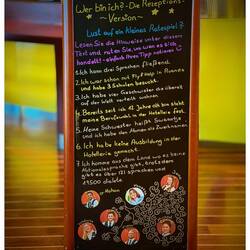 Wer bin ich? - Die Rezeptions-
~Version~
Lust auf ein kleines Ratespiel?
Lesen Sie die Hinweise unter diesem
Text und raten Sie, um wen es sich
handelt! - einfach Ihren Tipp notieren
1. Ich kann drei Sprachen fließend.
2. Ich war schon mit Fly & Help in Ruanda
und habe 3 Schulen besucht.
3. Ich habe vier Geschwister die überall
auf der Welt verteilt wohnen.
4. Bereits seit ich 12 Jahre alt bin steht
meine Berufswahl in der Hotellerie fest.
5. Meine Schwester heißt
und ich habe den Atman als Zweitnamen
6. Ich habe keine Ausbildung in
der Hotellerie gemacht.
7. Ich komme aus dem Land wo es keine
Nationalsprache gibt, trotzdem
gibt es über 121 sprachen und
21500 dialekte